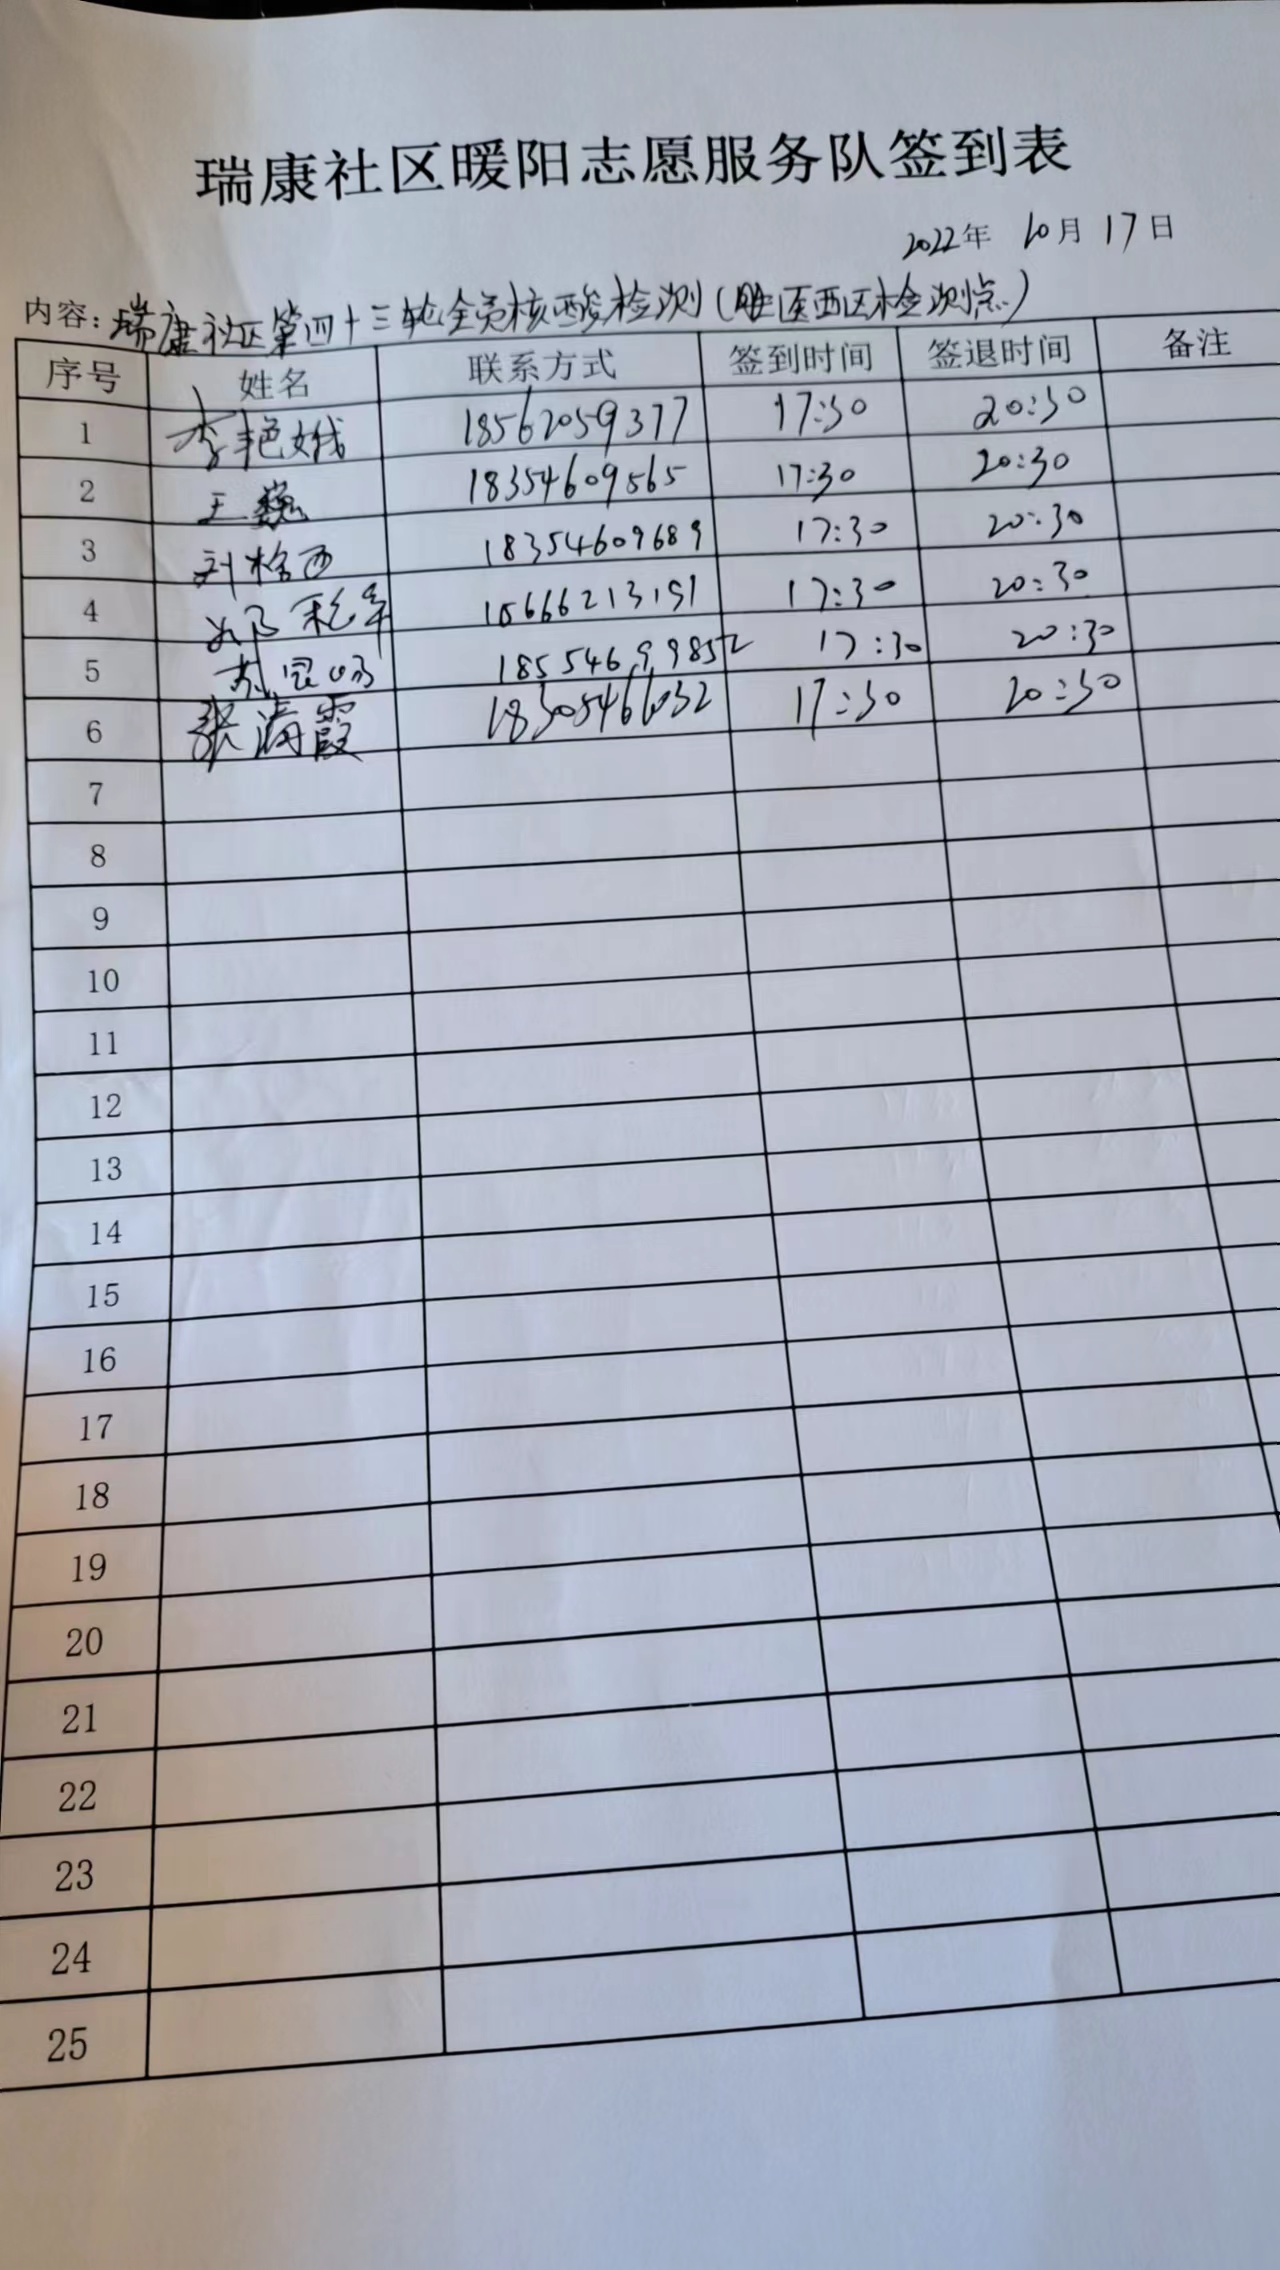 瑞康社区暖阳志愿服务队签到表
2022年 10月 17日
内容：瑞康社区第四十三轮全员核酸检测（胜医西区检测点）
序号 姓名 联系方式 签到时间 签退时间 备注
1 李艳娥 18562059377 17:30 20:30
2 王巍 18354609565 17:30 20:30
3 刘检西 18354609689 17:30 20:30
4 15666213191 17:30 20:30
5 18554699852 17:30 20:30
6 张满霞 18305466032 17:30 20:30
7
8
9
10
11
12
13
14
15
16
17
18
19
20
21
22
23
24
25